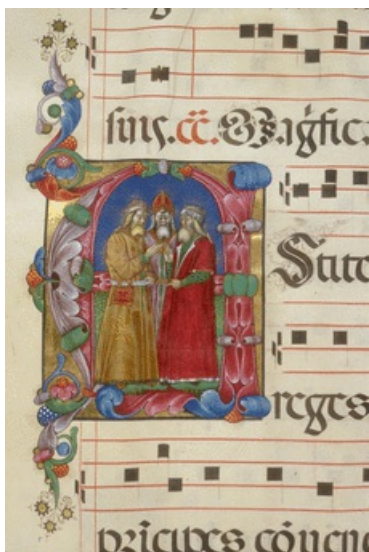 suis. cc. Magific.
AStite
reges
pricipes cōuene